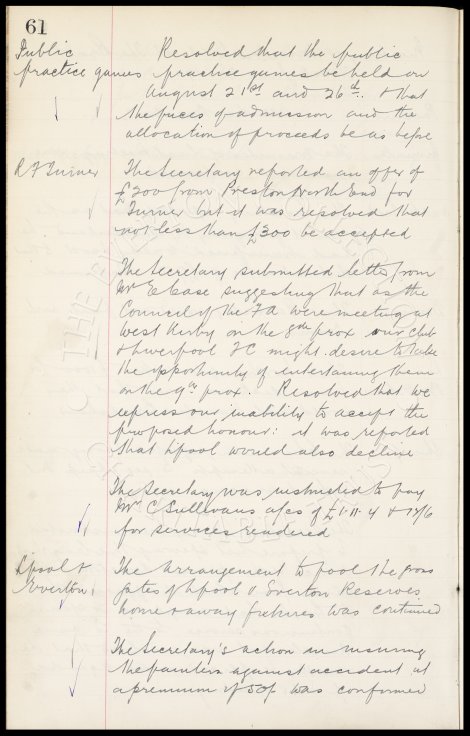 61
Public practice games
Resolved that the public
practice games be held on
August 21st and 26th. & that
the prices of admission and the
allocation of proceeds be as before
R F Turner
The Secretary reported an offer of
£200 from Preston North End for
Turner but it was resolved that
not less than £300 be accepted
The Secretary submitted letter from
Mr E Case suggesting that as the
Council of the FA were meeting at
West Kirby on the 8th prox our club
& Liverpool FC might desire to take
the opportunity of entertaining them
on the 9th prox. Resolved that we
express our inability to accept the
proposed honour: it was reported
that L'pool would also decline
The Secretary was instructed to pay
Mr C Sullivans a/cs of £1-11-4 &
for services rendered
L'pool &
Everton
The arrangement to pool the gross
gates of L'pool & Everton Reserves
home & away fixtures was continued
The Secretary's action in insuring
the painters against accident at
a premium of 50/- was confirmed